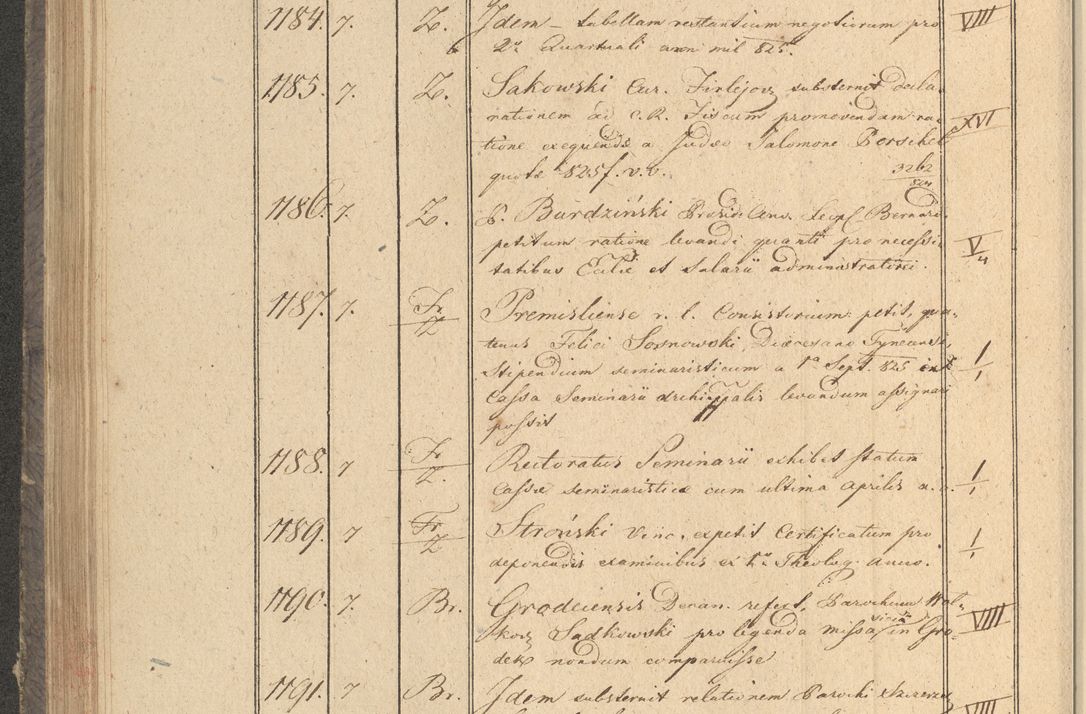 1184. 7. Z. Idem – tabellam restantium negotiorum pro VIII
2o Quartuali ann mil 825.
1185. 7. Z. Sakowski Cur. Firlejov substernit decla-
rationem ad C. R. Fiscum promovendam ra- XVI
tione exequendae a Judaeo Salomone
quotae 825 f. v. v. 3262
1186. 7. Z. P. Burdziński Conv. Leopl Bernard.
petitum ratione levandi quanti pro necessi- V/4
tatibus Eccliae et Salarii administratorei.
1187. 7. Fr/Z Premisliense r. l. Consistorium petit, qua-
tenus Felici Sosnowski Dioecesano Tynecensi,
Stipendium seminaristicum a 1a Sept. 825 1/1
Cassa Seminarii levandum assignari
possit
1188. 7 Fr/Z. Rectoratus Seminarii exhibet statum
Cassae seminaristicae cum ultima Aprilis a. c. 1/1
1189. 7 Fr/Z Stroński Vinc. expetit Certificatum pro
deponendis examinibus ex Theolog. anno. 1/1
1190. 7. Br. Grodeciensis Decan. refert, Parochum Wol-
kov Sadkowski pro legenda missa in Gro- VIIII
dek nondum comparuisse
1191. 7 Br. Idem substernit relationem Parochi